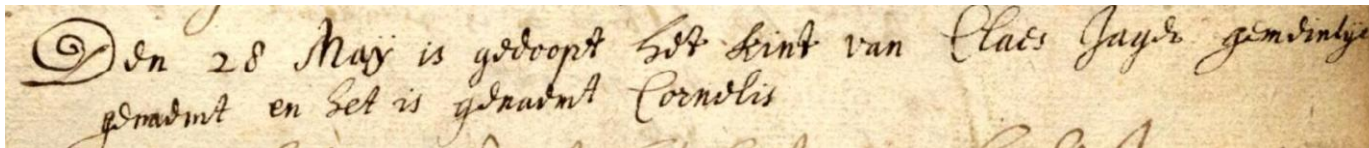 Den 28 Maÿ is gedoopt het kint van Claes Jager gemeinlije
genaemt en het is genaemt Cornelis